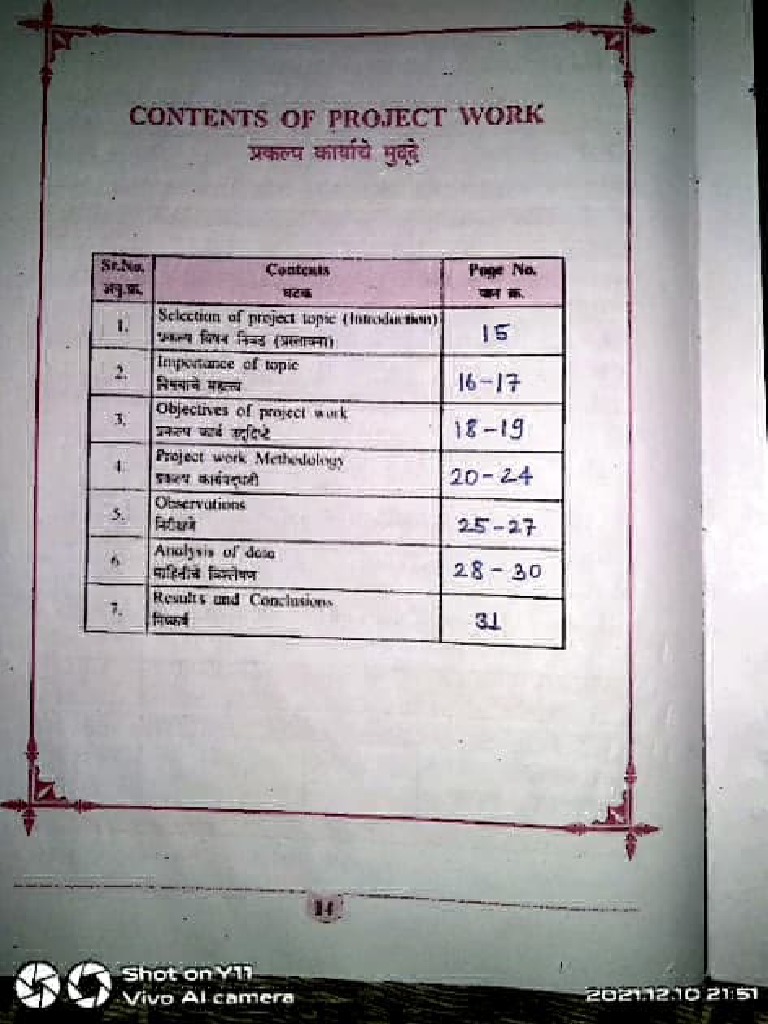 CONTENTS OF PROJECT WORK
प्रकल्प कार्याचे मुद्दे
Sr.No. Contents Page No.
अनु.क्र. घटक पान क्र.
1. Selection of project topic (Introduction) 15
प्रकल्प विषय निवड (प्रस्तावना)
2. Importance of topic 16-17
विषयाचे महत्त्व
3. Objectives of project work 18-19
प्रकल्प कार्य उद्दिष्टे
4. Project work Methodology 20-24
प्रकल्प कार्यपद्धती
5. Observations 25-27
निरीक्षणे
6. Analysis of data 28-30
माहितीचे विश्लेषण
7. Results and Conclusions 31
निष्कर्ष
14
Shot on Y11
Vivo AI camera
2021.12.10 21:51